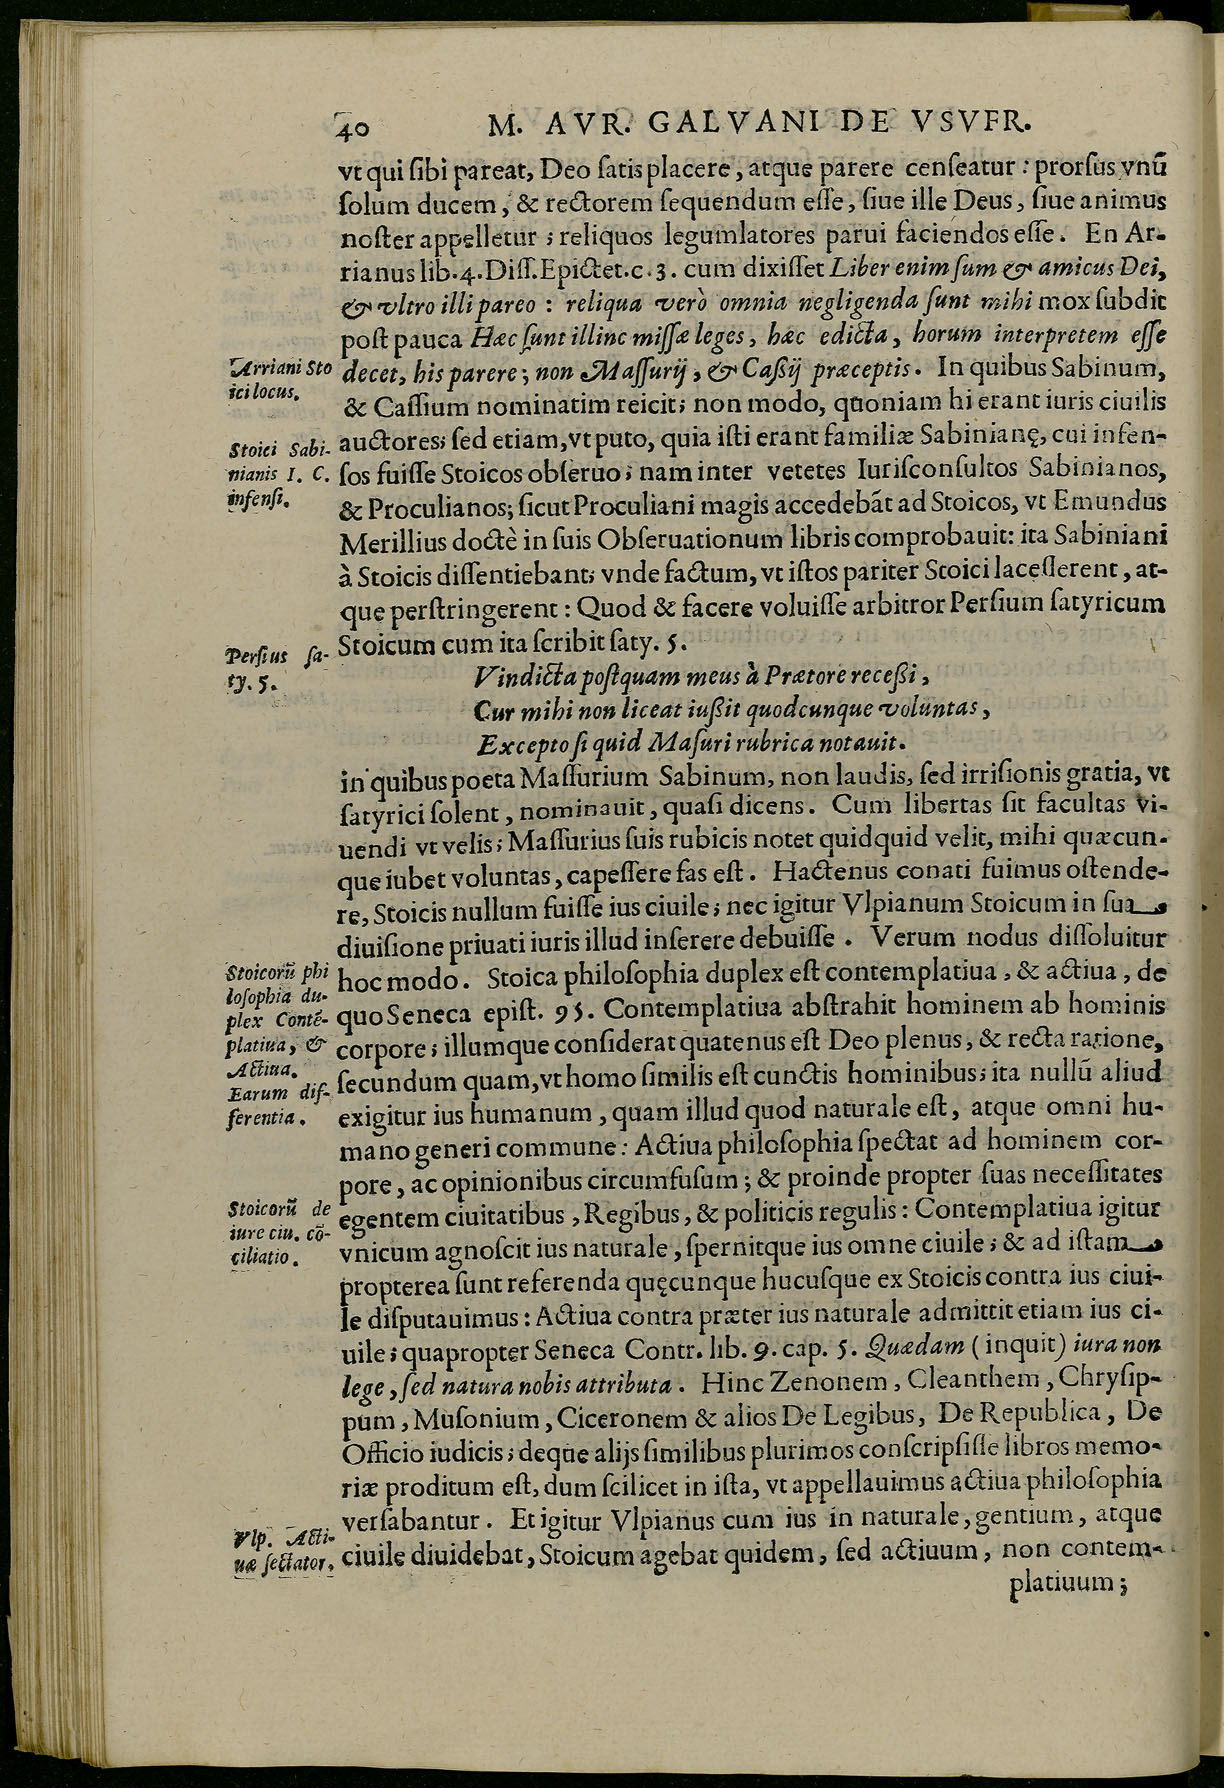 40 M. AVR. GALVANI DE VSVFR.
vt qui ſibi pareat, Deo ſatis placere, atque parere cenſeatur: prorſus vnū
ſolum ducem, & rectorem ſequendum eſſe, ſiue ille Deus, ſiue animus
noſter appelletur; reliquos legumlatores parui faciendos eſſe. En Ar-
rianus lib. 4. Diſſ. Epictet. c. 3. cum dixiſſet Liber enim ſum & amicus Dei,
& vltro illi pareo: reliqua verò omnia negligenda ſunt mihi mox ſubdit
poſt pauca Hæc ſunt illinc miſſæ leges, hæc edicta, horum interpretem eſſe
decet, his parere; non Maſſurij, & Caßij præceptis. In quibus Sabinum,
& Caſſium nominatim reicit; non modo, quoniam hi erant iuris ciuilis
auctores; ſed etiam, vt puto, quia iſti erant familiæ Sabinianę, cui infen-
ſos fuiſſe Stoicos obſeruo; nam inter vetetes Iuriſconſultos Sabinianos,
& Proculianos; ſicut Proculiani magis accedebāt ad Stoicos, vt Emundus
Merillius doctè in ſuis Obſeruationum libris comprobauit: ita Sabiniani
à Stoicis diſſentiebant; vnde factum, vt iſtos pariter Stoici laceſſerent, at-
que perſtringerent: Quod & facere voluiſſe arbitror Perſium ſatyricum
Stoicum cum ita ſcribit ſaty. 5.
Vindicta poſtquam meus à Prætore receßi,
Cur mihi non liceat iußit quodcunque voluntas,
Excepto ſi quid Maſuri rubrica notauit.
in quibus poeta Maſſurium Sabinum, non laudis, ſed irriſionis gratia, vt
ſatyrici ſolent, nominauit, quaſi dicens. Cum libertas ſit facultas vi-
uendi vt velis; Maſſurius ſuis rubicis notet quidquid velit, mihi quæcun-
que iubet voluntas, capeſſere fas eſt. Hactenus conati fuimus oſtende-
re, Stoicis nullum fuiſſe ius ciuile; nec igitur Vlpianum Stoicum in ſua
diuiſione priuati iuris illud inſerere debuiſſe. Verum nodus diſſoluitur
hoc modo. Stoica philoſophia duplex eſt contemplatiua, & actiua, de
quo Seneca epiſt. 95. Contemplatiua abſtrahit hominem ab hominis
corpore; illumque conſiderat quatenus eſt Deo plenus, & recta ratione,
ſecundum quam, vt homo ſimilis eſt cunctis hominibus; ita nullū aliud
exigitur ius humanum, quam illud quod naturale eſt, atque omni hu-
mano generi commune: Actiua philoſophia ſpectat ad hominem cor-
pore, ac opinionibus circumfuſum; & proinde propter ſuas neceſſitates
egentem ciuitatibus, Regibus, & politicis regulis: Contemplatiua igitur
vnicum agnoſcit ius naturale, ſpernitque ius omne ciuile; & ad iſtam
propterea ſunt referenda quęcunque hucuſque ex Stoicis contra ius ciui-
le diſputauimus: Actiua contra præter ius naturale admittit etiam ius ci-
uile; quapropter Seneca Contr. lib. 9. cap. 5. Quædam (inquit) iura non
lege, ſed natura nobis attributa. Hinc Zenonem, Cleanthem, Chryſip-
pum, Muſonium, Ciceronem & alios De Legibus, De Republica, De
Officio iudicis; deque alijs ſimilibus plurimos conſcripſiſſe libros memo-
riæ proditum eſt, dum ſcilicet in iſta, vt appellauimus actiua philoſophia
verſabantur. Et igitur Vlpianus cum ius in naturale, gentium, atque
ciuile diuidebat, Stoicum agebat quidem, ſed actiuum, non contem-
platiuum;
Arriani Sto
ici locus.
Stoici Sabi-
nianis I. C.
infenſi.
Perſius ſa-
ty. 5.
Stoicorū phi
loſophia du-
plex Contē-
platiua, &
Actiua.
Earum dif-
ferentia.
Stoicorū de
iure ciu. cō-
ciliatio.
Vlp. Acti-
uæ ſectator.